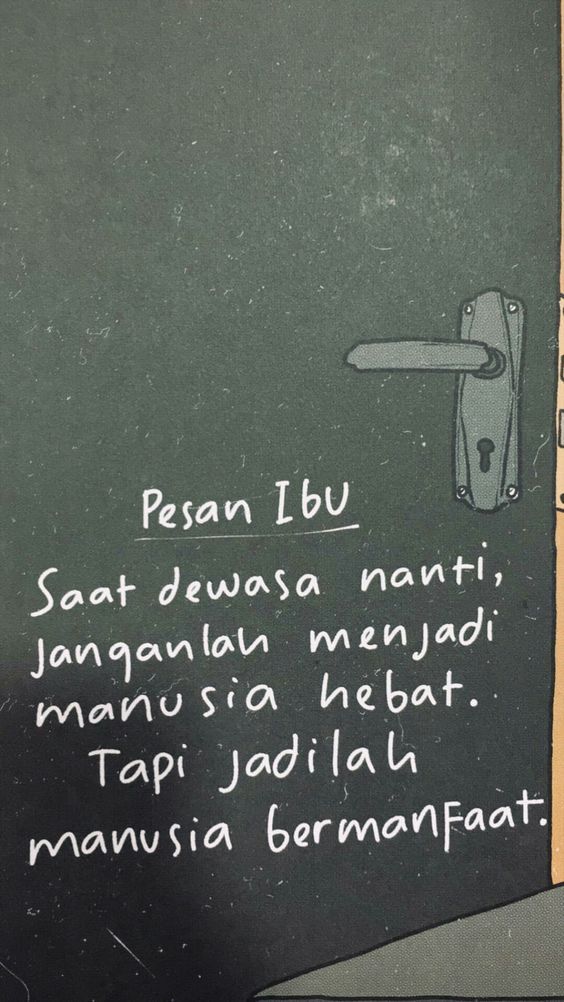 Pesan Ibu
Saat dewasa nanti,
Janganlah menjadi
manusia hebat.
Tapi jadilah
manusia bermanfaat.